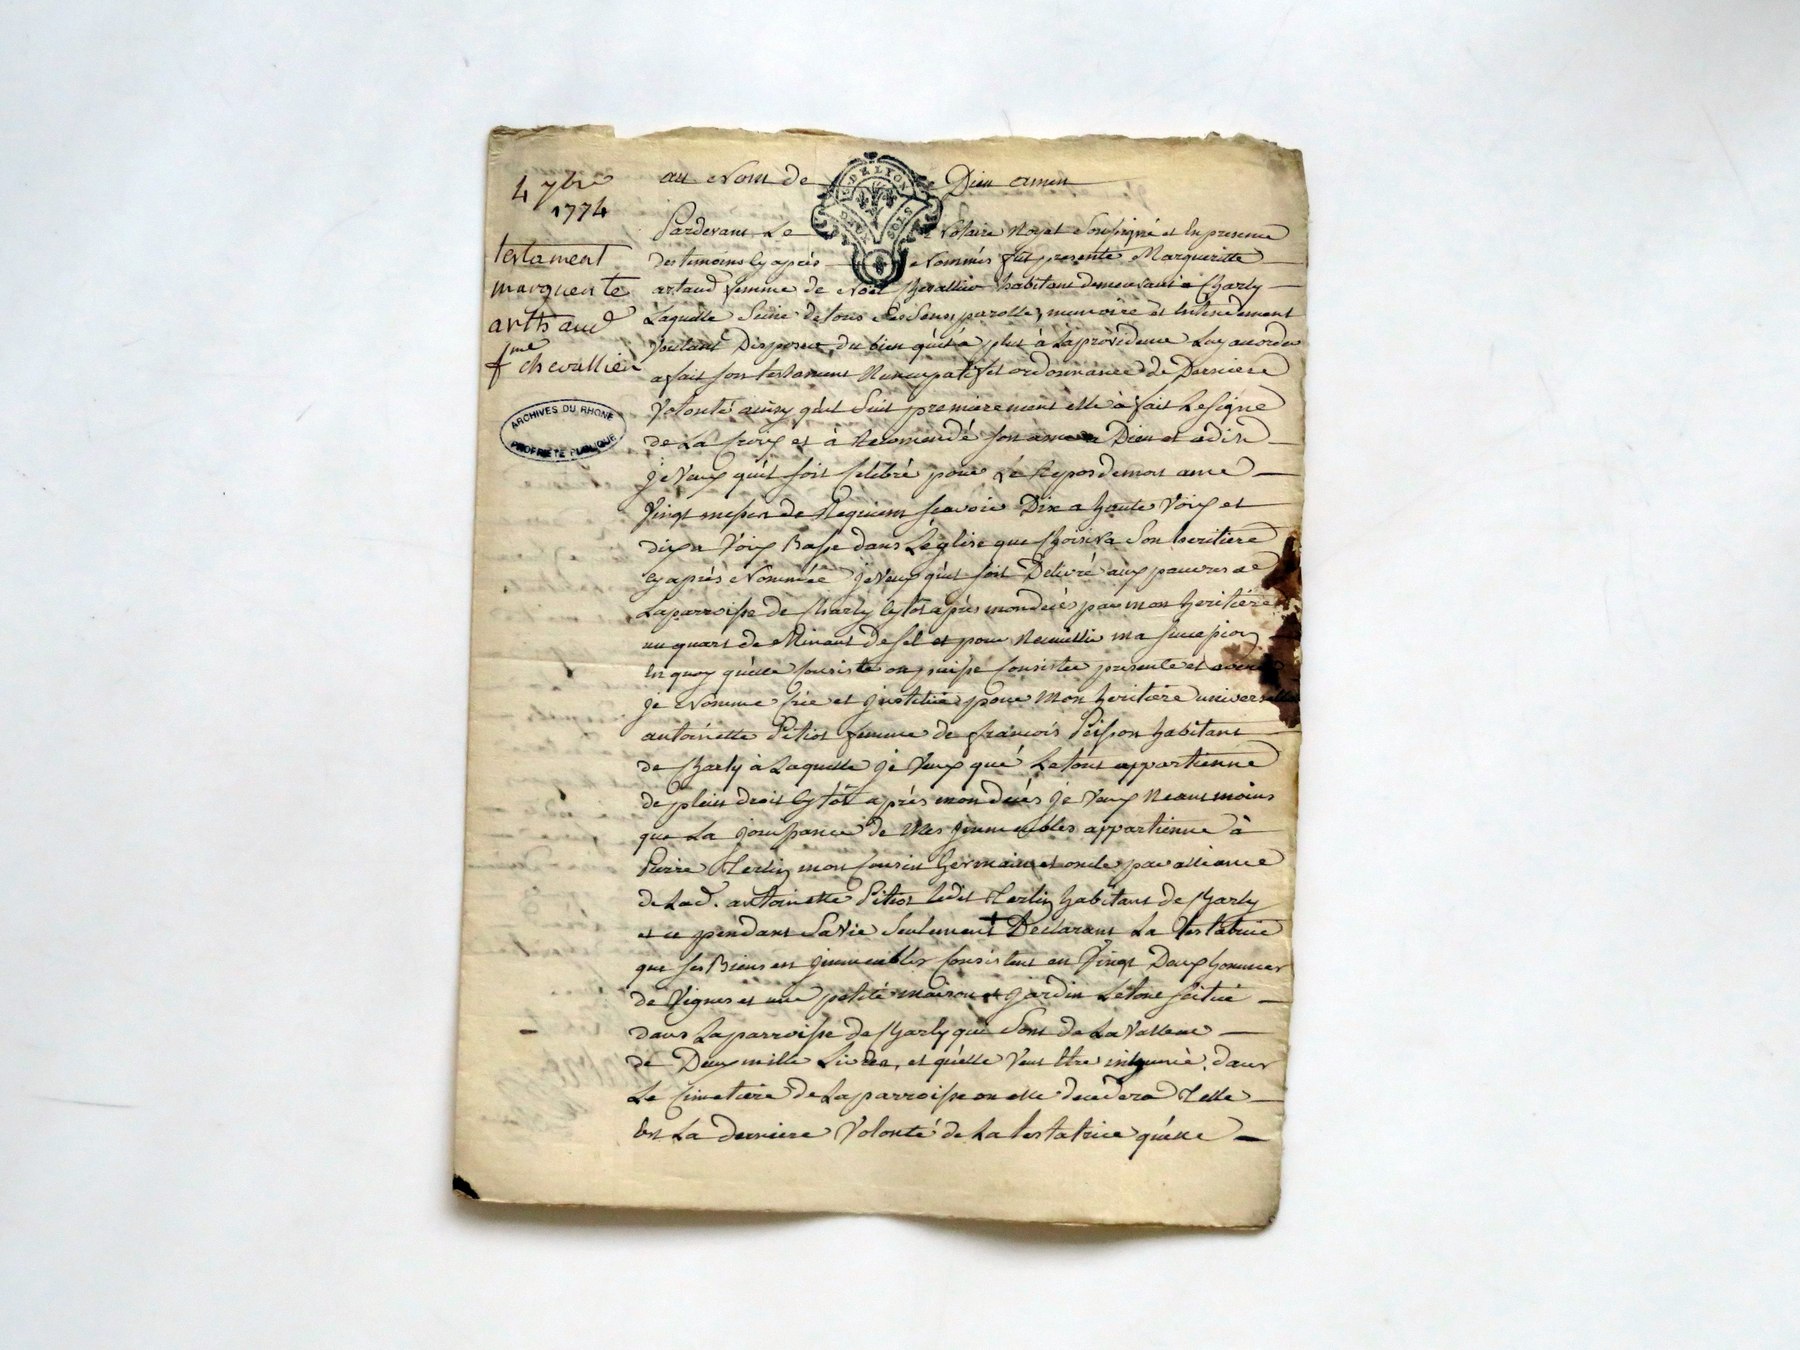 4 7bre
1774
testament
marguerite
arthaud
fme chevallier
ARCHIVES DU RHONE
PROPRIÉTÉ PUBLIQUE
au Nom de Dieu amen
DE LYON
DEUX SOLS
Pardevant Le Notaire Royal Soussigné et En presence
des temoins Cy après Nommés fut presente Margueritte
artaud femme de Noël Chevallier habitant demeurant a Charly
Laquelle Saine de tous Ses Sens, parolle, memoire et Entendement
Voulant Disposer du bien qu'il a plut à La providence Luy accorder
a fait son testament Nuncupatif et ordonnance de Derniere
Volonté ainsy qu'il Suit premierement elle à fait Le Signe
de La Croix et à Recomendé son ame a Dieu et a dit
je Veux qu'il soit Celebré pour Le Repos de mon ame
Vingt messes de Requiem scavoir Dix a haute Voix et
dix a Voix Basse dans L'églize que Choisira Son heritiere
cy après Nommée je Veux qu'il soit Delivré aux pauvres de
La parroisse de Charly sytôt après mon decés par mon heritiére
un quart de Minaut de sel et pour Recuillir ma succession
En quoy qu'elle Consiste ou puisse Consister presente et avenir
je Nomme Crée et jnstitue pour Mon heritiere universelle
antoinette Pitiot femme de françois Poisson habitant
de Charly à Laquelle je Veux que Le tout appartienne
de plein droit sytôt après mon decés je Veux Neantmoins
que La jouissance de Mes jmmeubles appartienne à
Pierre Merlin mon Cousin Germain et oncle par alliance
de Lad. antoinette Pitiot ledit Merlin habitant de Charly
et ce pendant Sa Vie Seulement + Declarant La Testatrice
que ses Biens en jmmeubles Consistent en Vingt Deux hommes
de Vignes et une petite maison et jardin Le tout scitué
dans La parroisse de Charly qui Sont de La Valleur
de Deux mille Livres, et qu'elle Veut Etre inhumée dans
Le Cimetiere de La parroisse ou elle decedera Telle
Est La derniere Volonté de La testatrice qu'elle